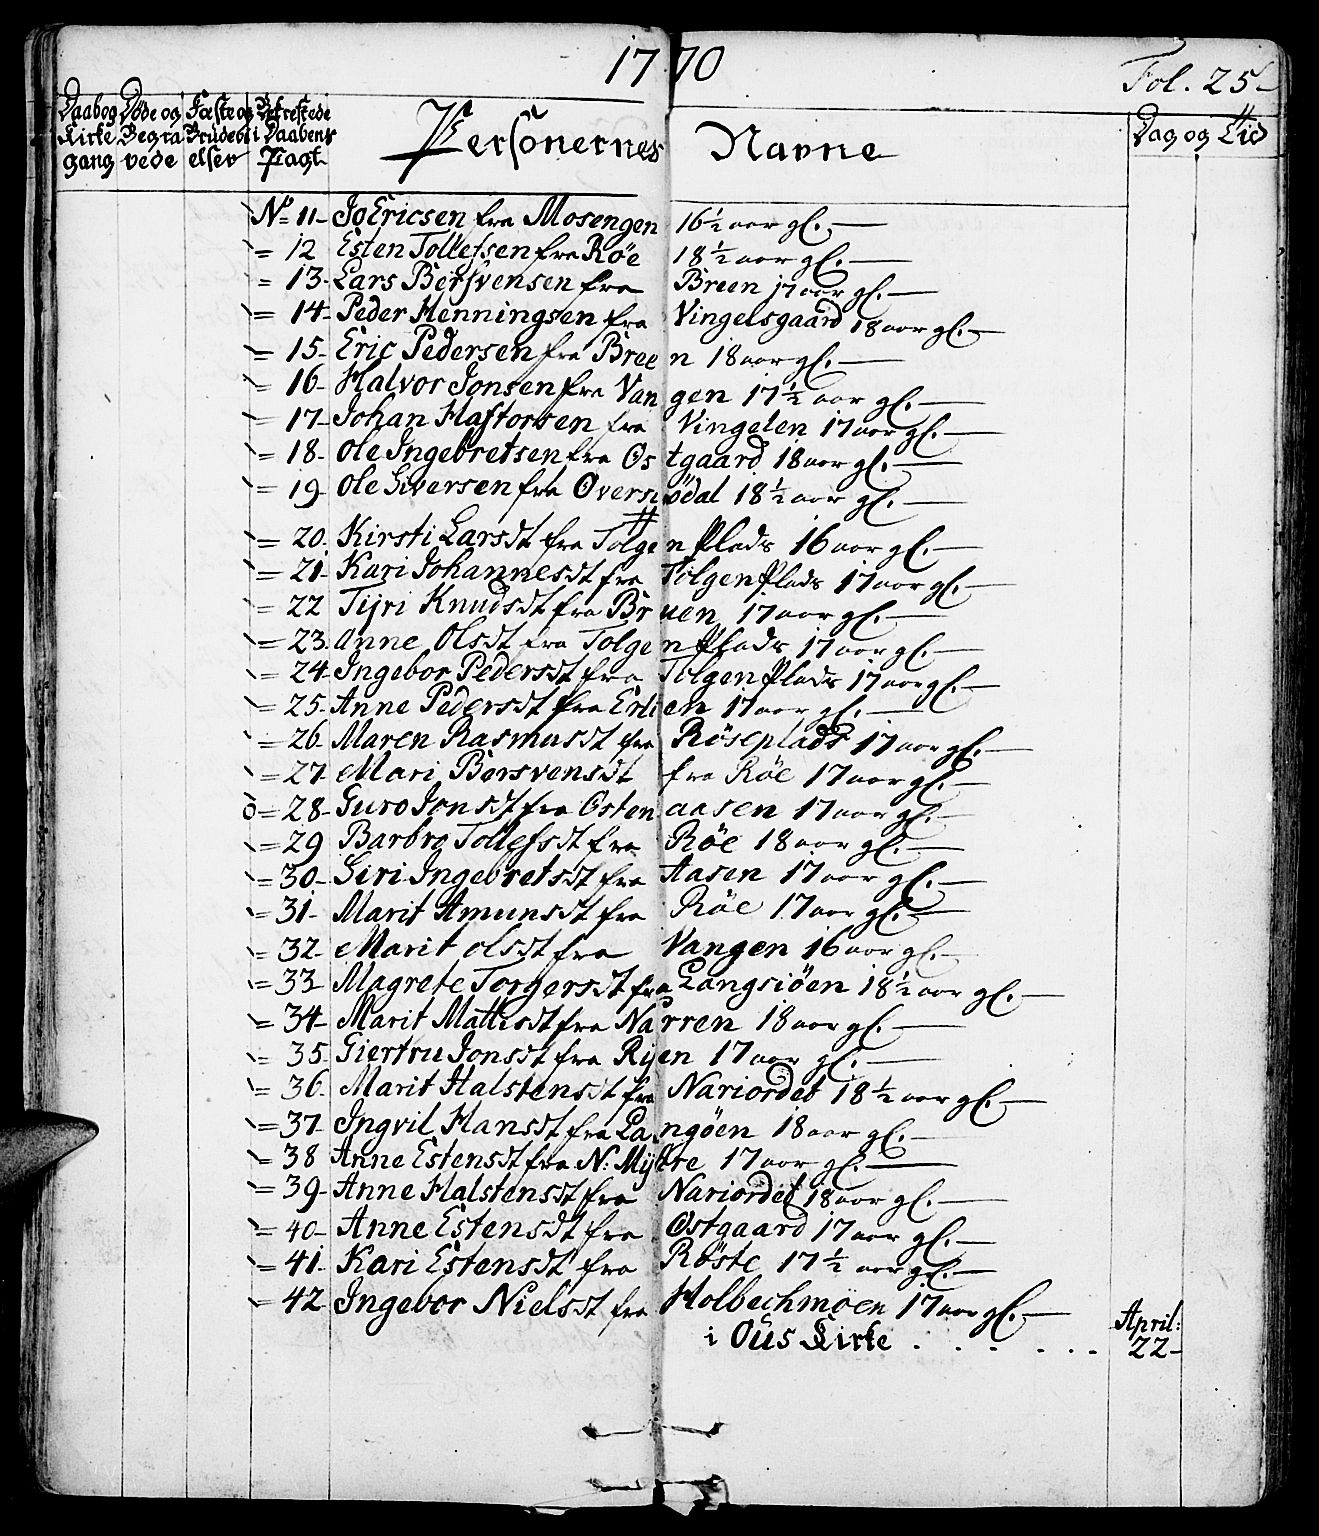 1770
Fol. 25
Daab og Kirke gang
Døde og Begra vede
Fæste og Brudevi elser
Bekrestede i Daabens Pagt
Personernes Navne
Dag og Tid
No 11 Jo Ericsen fra Mosengen 16 1/2 aar gl.
= 12 Esten Tollefsen fra Røe 18 1/2 aar gl.
= 13 Lars Bersvensen fra Breen 17 aar gl.
= 14 Peder Henningsen fra Vingelsgaard 18 aar gl.
= 15 Eric Pedersen fra Breen 18 aar gl.
= 16 Halvor Jonsen fra Vangen 17 1/2 aar gl.
= 17 Johan Haftorsen fra Vingelen 17 aar gl.
= 18 Ole Ingebretsen fra Ostgaard 18 aar gl.
= 19 Ole Siversen fra Oversiödal 18 1/2 aar gl.
= 20 Kirsti Larsdt fra Tolgen Plads 16 aar gl.
= 21 Kari Johannesdt fra Tolgen Plads 17 aar gl.
= 22 Tyri Knudsdt fra Bruen 17 aar gl.
= 23 Anne Olsdt fra Tolgen Plads 17 aar gl.
= 24 Ingebor Pedersdt fra Tolgen Plads 17 aar gl.
= 25 Anne Pedersdt fra Erlien 17 aar gl.
= 26 Maren Rasmusdt fra Röseplads 17 aar gl.
= 27 Mari Bersvensdt fra Røe 17 aar gl.
o = 28 Guro Jonsdt fra Ostenaasen 17 aar gl.
= 29 Barbro Tollefsdt fra Røe 18 aar gl.
= 30 Siri Ingebretsdt fra Aasen 17 aar gl.
= 31 Marit Amunsdt fra Røe 17 aar gl.
= 32 Marit Olsdt fra Vangen 16 aar gl.
= 33 Magrete Torgersdt fra Langsiöen 18 1/2 aar gl.
= 34 Marit Mattisdt fra Narren 18 aar gl.
= 35 Giertru Jonsdt fra Ryen 17 aar gl.
= 36 Marit Halstensdt fra Nariordet 18 1/2 aar gl.
= 37 Ingvil Hansdt fra Langöen 18 aar gl.
= 38 Anne Estensdt fra N: Myhre 17 aar gl.
= 39 Anne Halstensdt fra Nariordet 18 aar gl.
= 40 Anne Estensdt fra Ostgaard 17 aar gl.
= 41 Kari Estensdt fra Röste 17 1/2 aar gl.
= 42 Ingebor Nielsdt fra Holbechmoen 17 aar gl.
i Ous Kirke . . . . . . April: 22